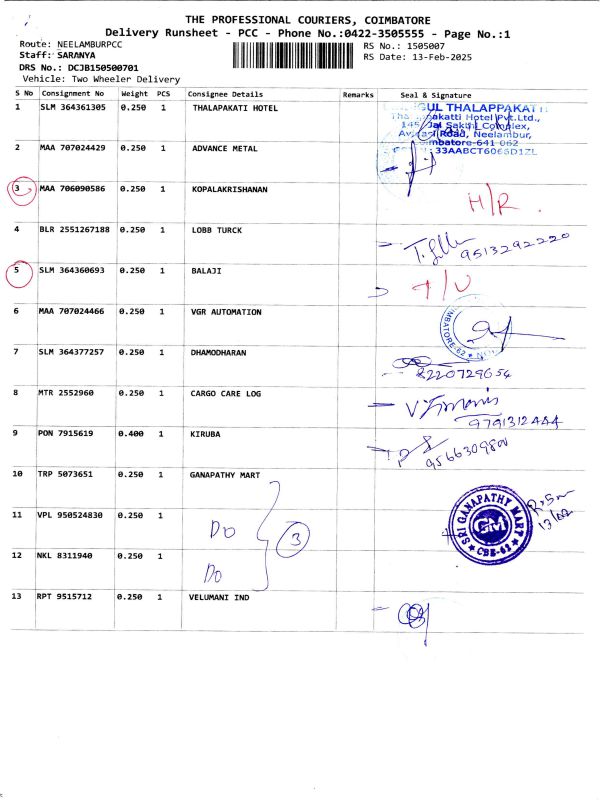 THE PROFESSIONAL COURIERS, COIMBATORE
Delivery Runsheet - PCC - Phone No.:0422-3505555 - Page No.:1
Route: NEELAMBURPCC RS No.: 1505007
Staff: SARANYA RS Date: 13-Feb-2025
DRS No.: DCJB150500701
Vehicle: Two Wheeler Delivery
S No Consignment No Weight PCS Consignee Details Remarks Seal & Signature
1 SLM 364361305 0.250 1 THALAPAKATI HOTEL
GUL THALAPPAKATTI
Hotel Pvt.Ltd.,
145, Jai Sakthi Complex,
Road, Neelambur,
641 062
33AABCT6065D1ZL
2 MAA 707024429 0.250 1 ADVANCE METAL
3 MAA 706090586 0.250 1 KOPALAKRISHANAN H/R.
4 BLR 2551267188 0.250 1 LOBB TURCK 9513292220
5 SLM 364360693 0.250 1 BALAJI
6 MAA 707024466 0.250 1 VGR AUTOMATION
7 SLM 364377257 0.250 1 DHAMODHARAN 8220729654
8 MTR 2552960 0.250 1 CARGO CARE LOG 9791312444
9 PON 7915619 0.400 1 KIRUBA
10 TRP 5073651 0.250 1 GANAPATHY MART
SRI GANAPATHY MART
GM
CBE-62
11 VPL 950524830 0.250 1 Do 3
12 NKL 8311940 0.250 1 Do
13 RPT 9515712 0.250 1 VELUMANI IND